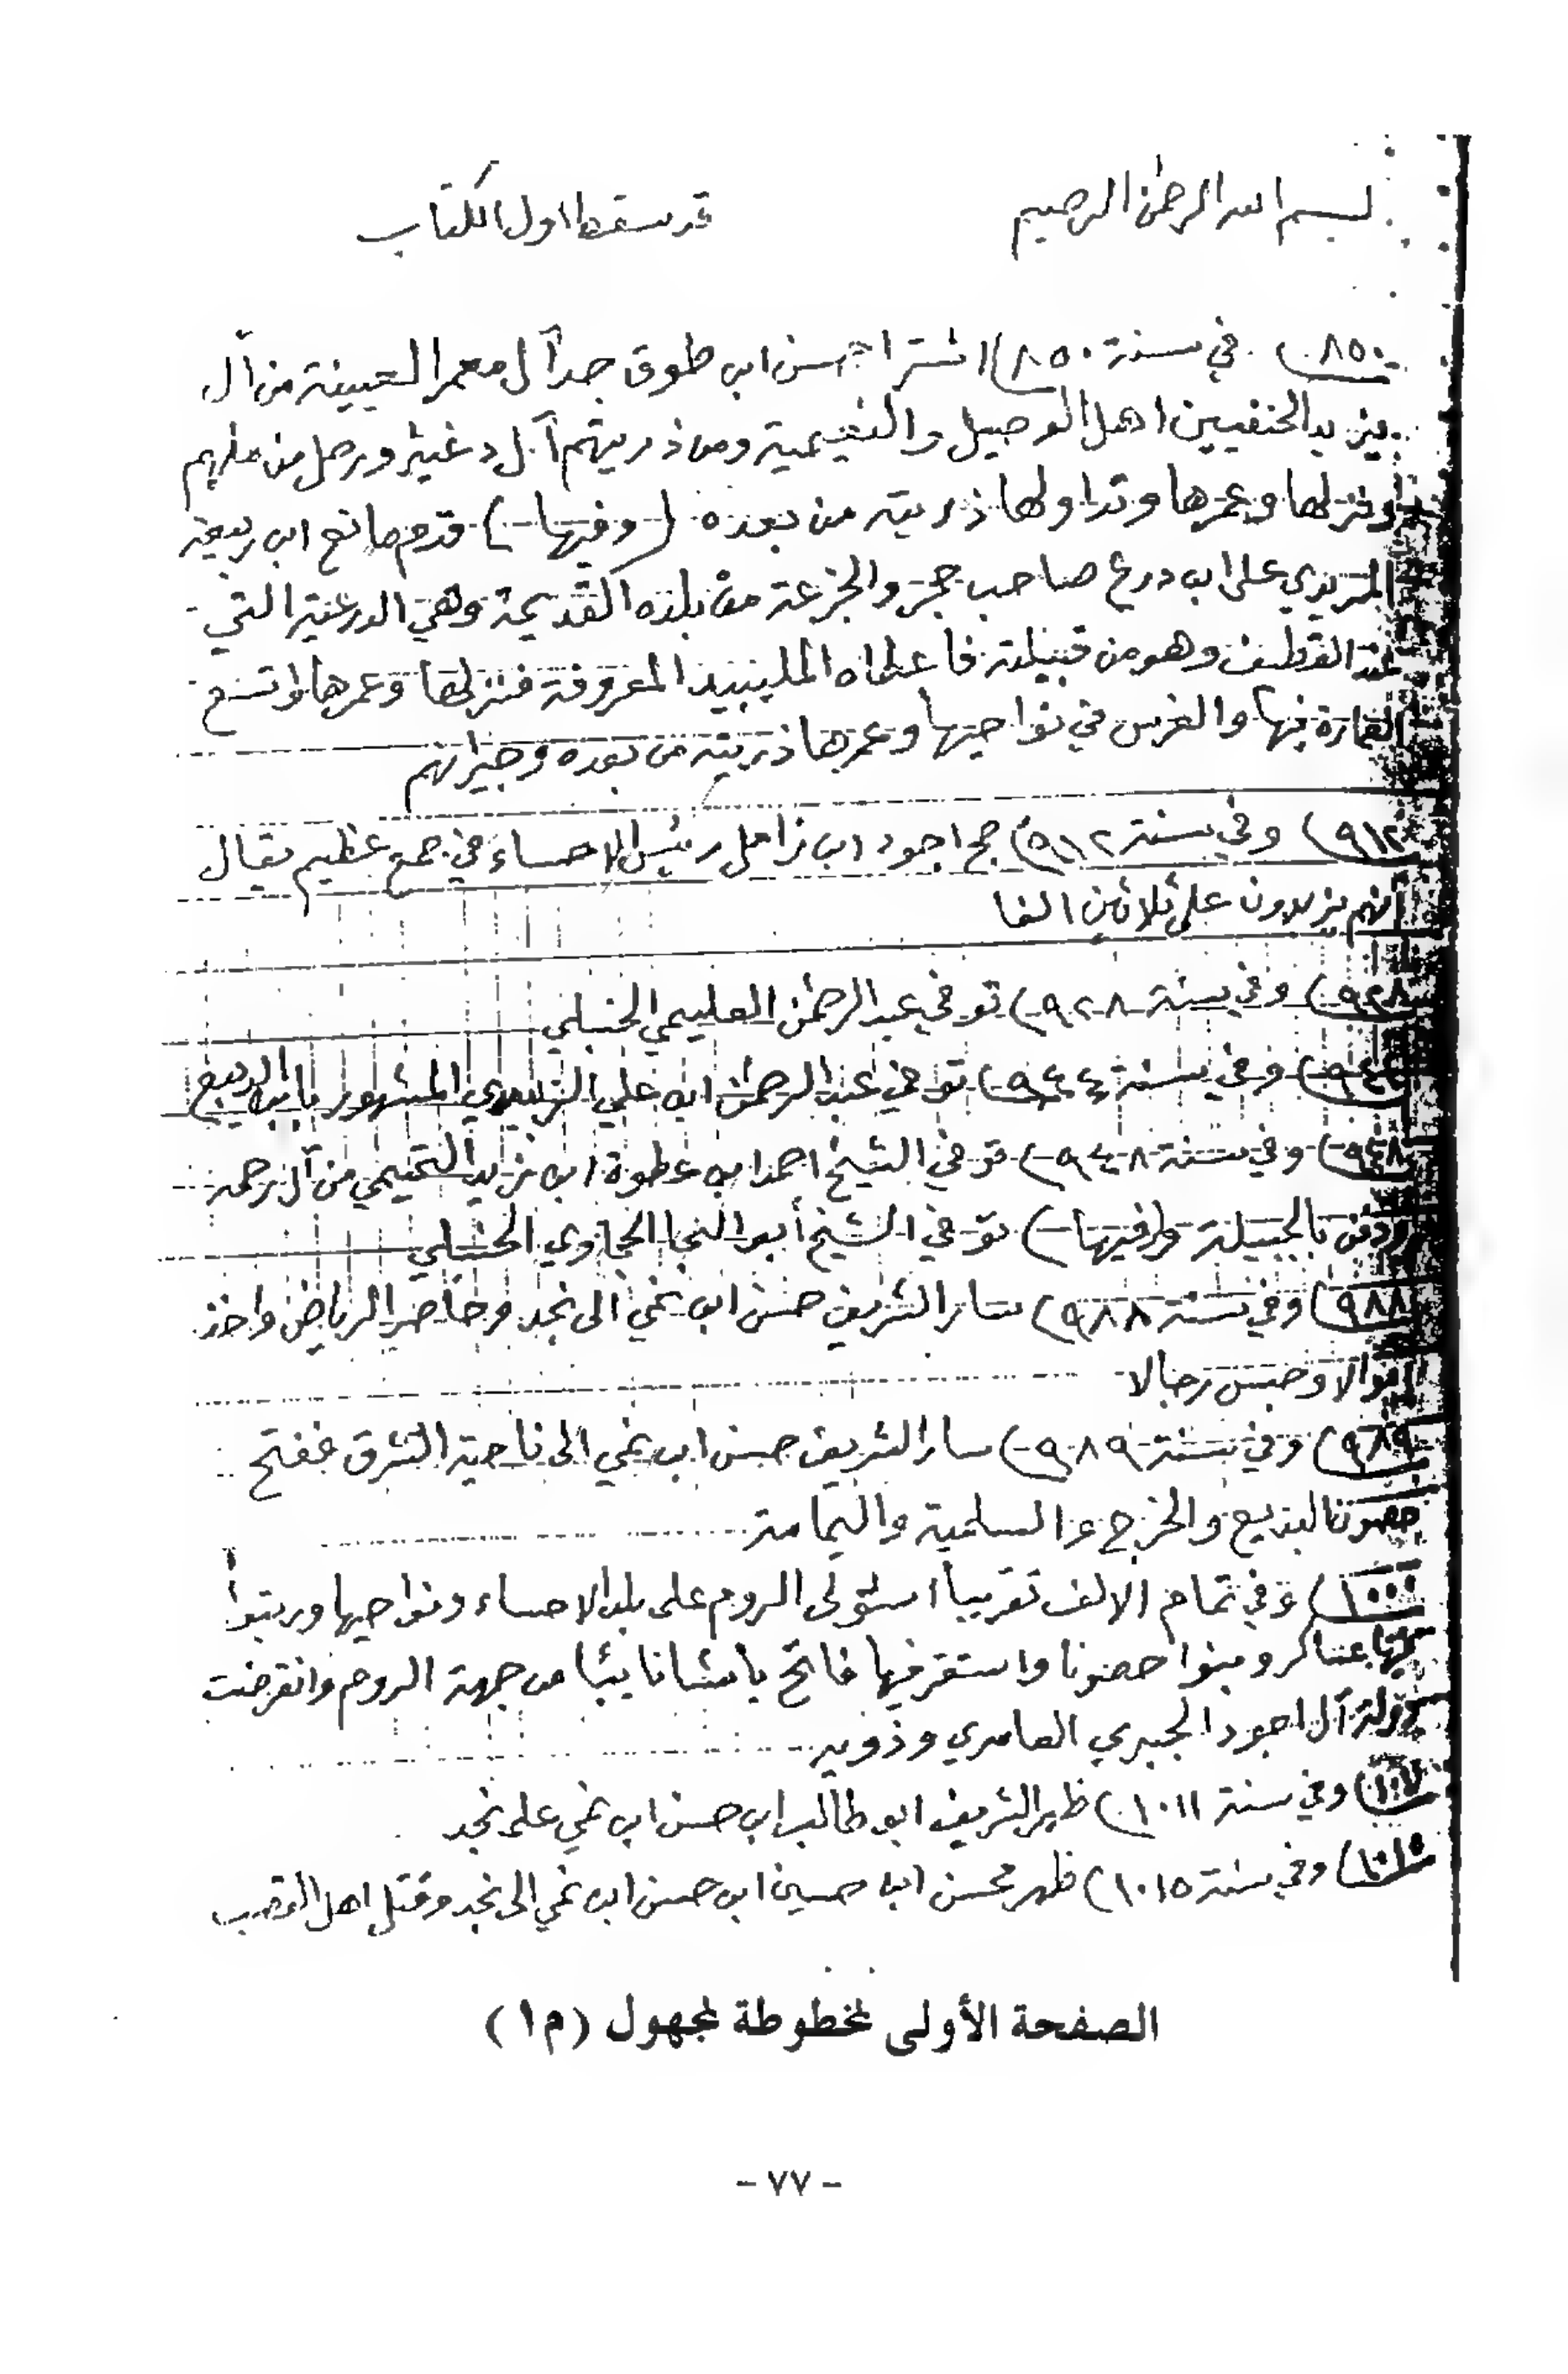 بسم الله الرحمٰن الرحيم
قد سقط اول الكتاب
٨٥٠) في سنة ٨٥٠) اشترا حسن ابن طوق جد آل معمر العيينة من آل
يزيد الحنفيين اهل الوصيل والنعيمية ومن ذريتهم آل دغيثر ورحل من ملهم
ونزلها وعمرها وتداولها ذريته من بعده (وفيها) قدم مانع ابن ربيعه
المريدي على ابن درع صاحب حجر والجزعة من بلده القديمة وهي الدرعية التي
عند القطيف وهو من قبيلته فاعطاه المليبيد المعروفة فنزلها وعمرها واتسع
العمارة فيها والغرس في نواحيها وعمرها ذريته من بعده وجيرانهم
٩١٢) وفي سنة ٩١٢) حج اجود ابن زامل رئيس الاحساء في جمع عظيم يقال
انهم يزيدون على ثلاثين الفا
٩٢٨) وفي سنة ٩٢٨) توفي عبدالرحمٰن العليمي الحنبلي
٩٤٤) وفي سنة ٩٤٤) توفي عبدالرحمٰن ابن علي الزبيدي المشهور بابن الديبع
٩٤٨) وفي سنة ٩٤٨) توفي الشيخ احمد ابن عطوة ابن زيد التميمي من آل رحمه
ودفن بالجبيلة (وفيها) توفي الشيخ أبو النجا الحجاوي الحنبلي
٩٨٨) وفي سنة ٩٨٨) سار الشريف حسن ابن نمي الى نجد وحاصر الرياض واخذ
اموالا وحبس رجالا
٩٨٩) وفي سنة ٩٨٩) سار الشريف حسن ابن نمي الى ناحية الشرق ففتح
حصون البديع والخرج والسلمية واليمامة
١٠٠٠) وفي تمام الالف تقريباً استولى الروم على بلد الاحساء ونواحيها ورتبوا
فيها عساكر وبنوا حصونا واستقر فيها فاتح باشا نايبًا من جهة الروم وانقرضت
دولة آل اجود الجبري العامري وذويه
١٠١١) وفي سنة ١٠١١) ظهر الشريف ابو طالب ابن حسن ابن نمي على نجد
١٠١٥) وفي سنة ١٠١٥) ظهر محسن ابن حسين ابن حسن ابن نمي الى نجد وقتل اهل القصب
الصفحة الأولى لمخطوطة لمجهول (م١)
- ٧٧ -